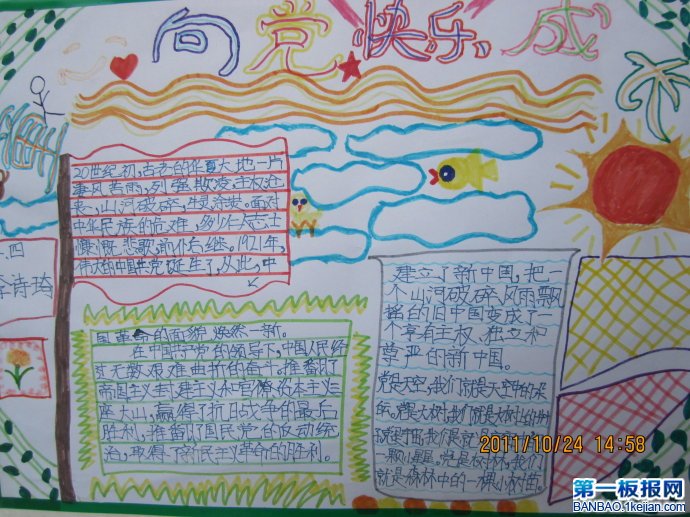 向党 快乐 成
20世纪初,古老的华夏大地一片
凄风苦雨,列强欺凌,主权沦
丧,山河破碎,生灵涂炭。面对
中华民族的危难,多少仁人志士
慷慨悲歌,前仆后继。1921年,
伟大的中国共党诞生了,从此,中
国革命的面貌焕然一新。
在中国共产党的领导下,中国人民经
过无数艰难曲折的奋斗,推翻了
帝国主义封建主义和官僚资本主义
座大山,赢得了抗日战争的最后
胜利,推翻了国民党的反动统
治,取得了新民主义革命的胜利。
建立了新中国,把一
个山河破碎,风雨飘
摇的旧中国变成了一
个享有主权、独立和
尊严的新中国。
党是天空,我们就是天空中的朵
党是大树,我们就是大树上的
我们就是
一颗小星星。党是森林,我们
就是森林中的一棵小树苗。
四
李诗琦
2011/10/24 14:58
第一板报网
BANBAO.1kejian.com